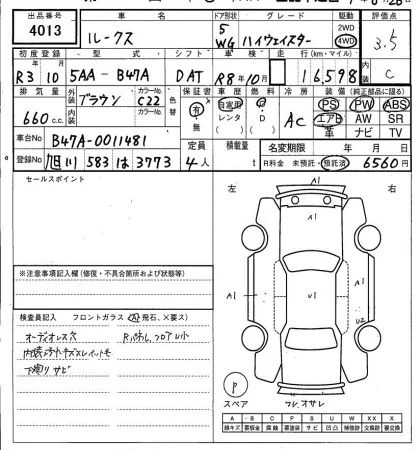 出品番号 車名 ドア形状 グレード 駆動 評価点
4013 ルークス 5 WG ハイウェイスター 2WD 4WD 3.5
初度登録 型式 シフト 車検 走行 (km・マイル) 内装
R3年10月 5AA-B47A DAT R8年10月 16,598 C
排気量 外装 カラーNo. 色替 保証書 車歴 燃料 冷房 装備 (純正部品に限る)
660c.c. ブラウン C22 有・無 自家用 レンタ G D AC PS PW ABS
エアB AW SR
革 ナビ TV
車台No B47A-0011481 定員 積載量 名変期限 年 月 日
登録No 旭川 583 は 3773 4人 t R料金 未預託・預託済 6560円
セールスポイント 左 右
A1
A1 U1 A1
U2
※注意事項記入欄(修復・不具合箇所および状態等)
検査員記入 フロントガラス (A)飛石、×要ス)
オーディオレス穴 Rパネル、フロアU小
内装汚れキズスレペットモ
下廻りサビ
P
スペア
ワレ、オサレ
A B C P S U W X XX X
線キズ 要板金 腐蝕 要塗装 サビ 凹凸 補修跡 交換跡 要交換